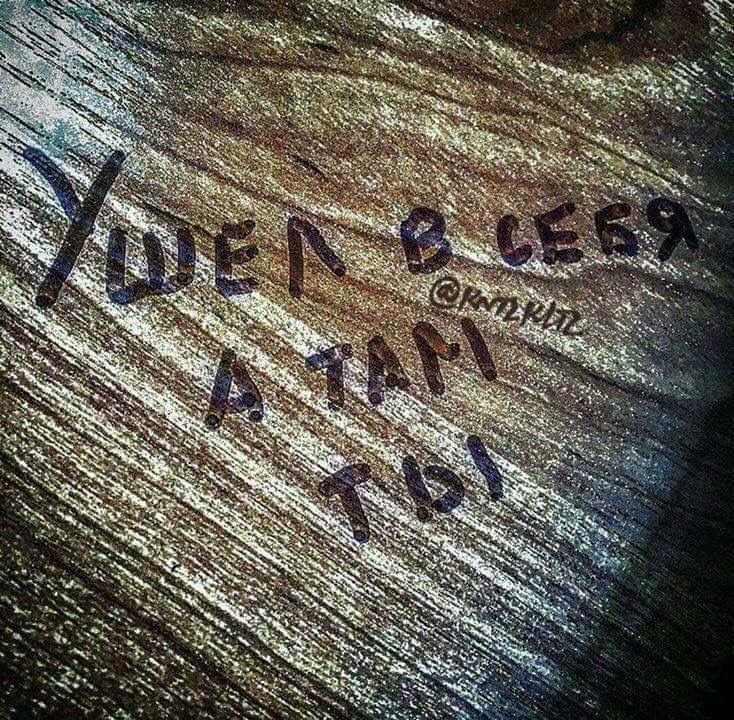 Ушел в себя
а там
ты